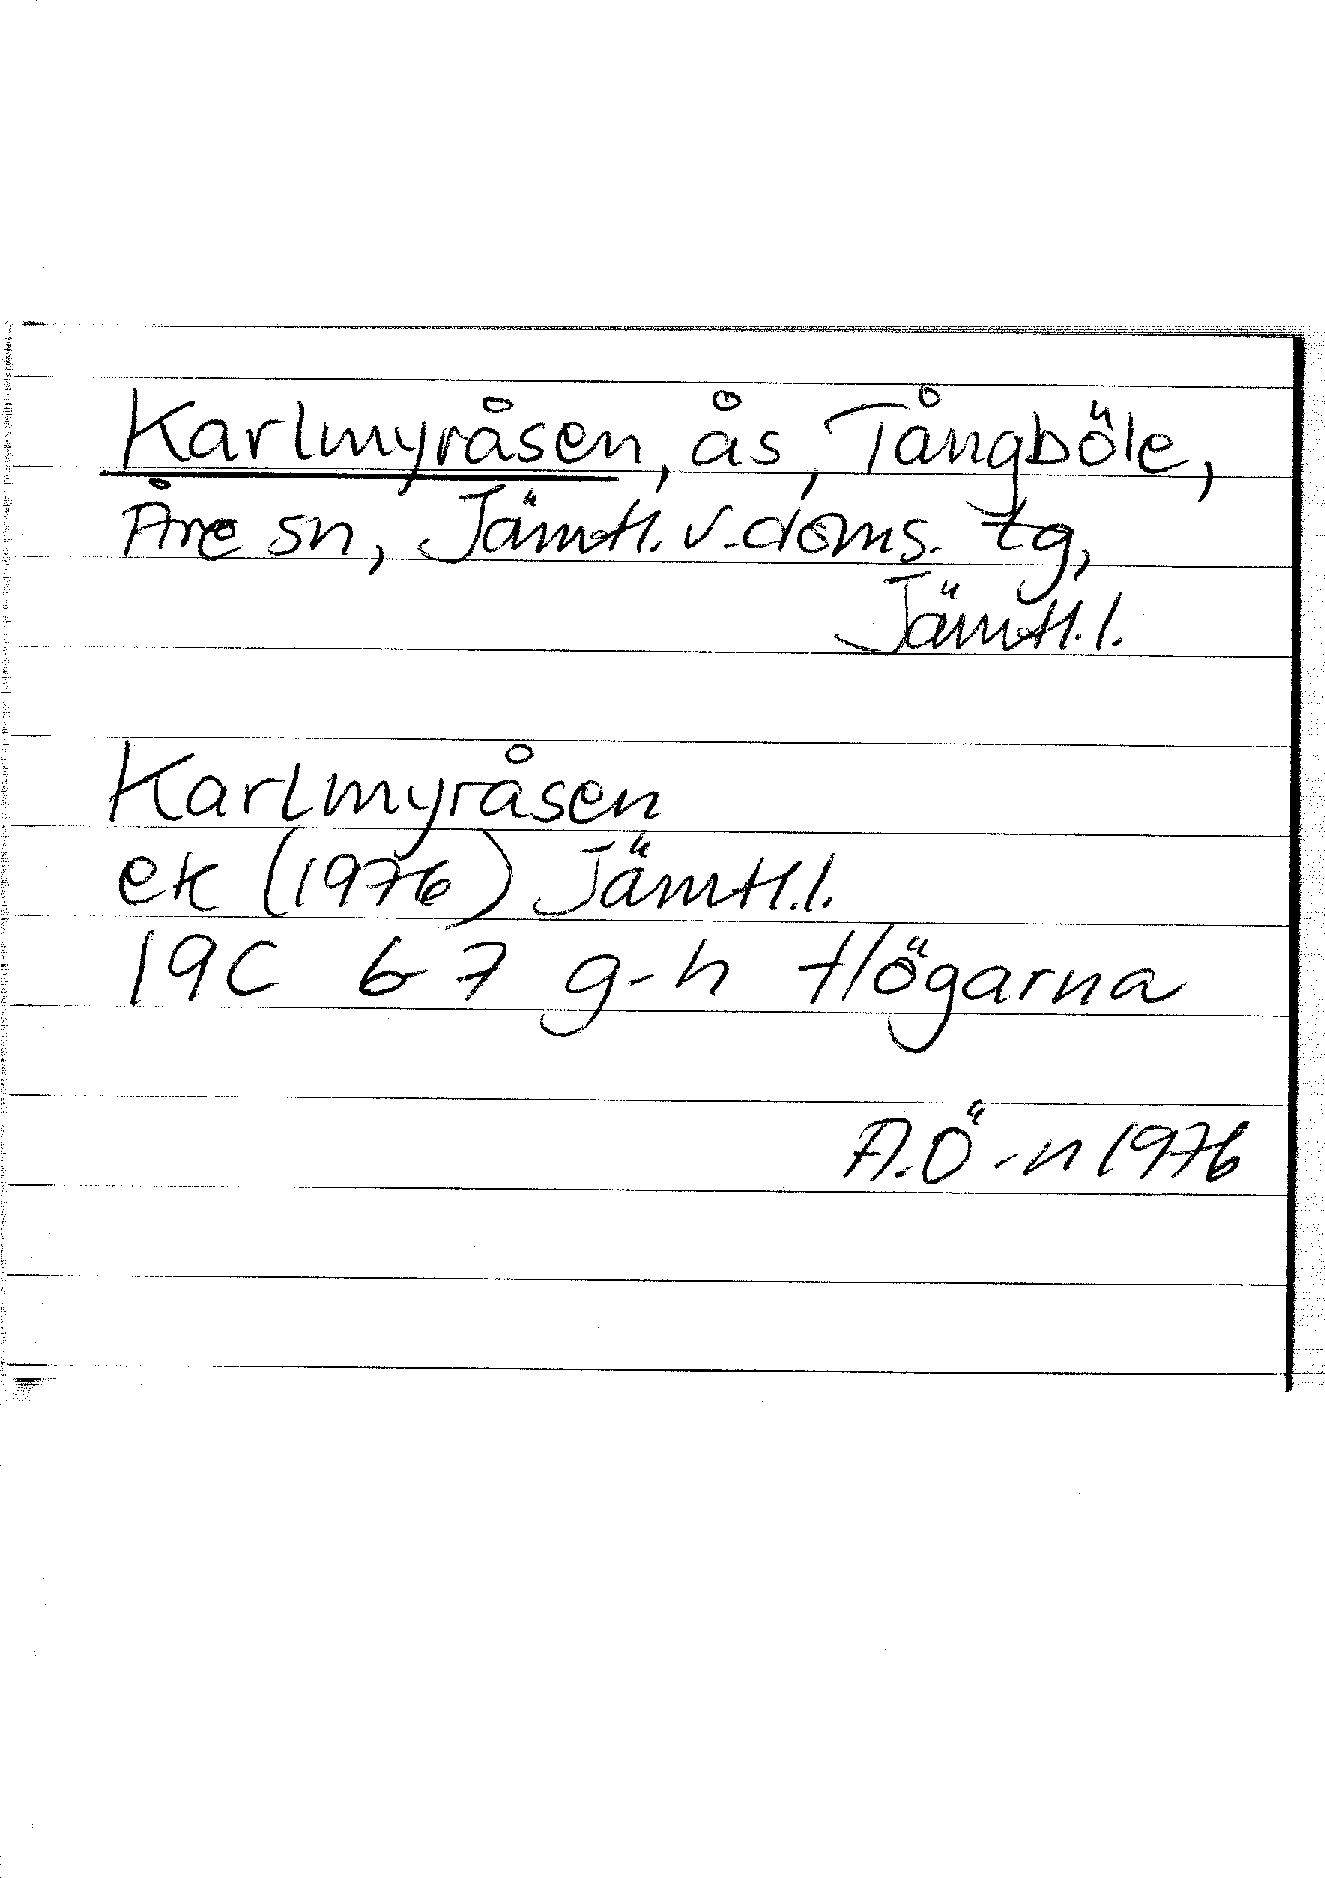 Karlmyråsen, ås, Tångböle,
Åre sn, Jämtl. v. doms. tg,
Jämtl. l.
Karlmyråsen
ek (1976) Jämtl. l.
19C 6-7 g-h Högarna
A.Ö-n 1976